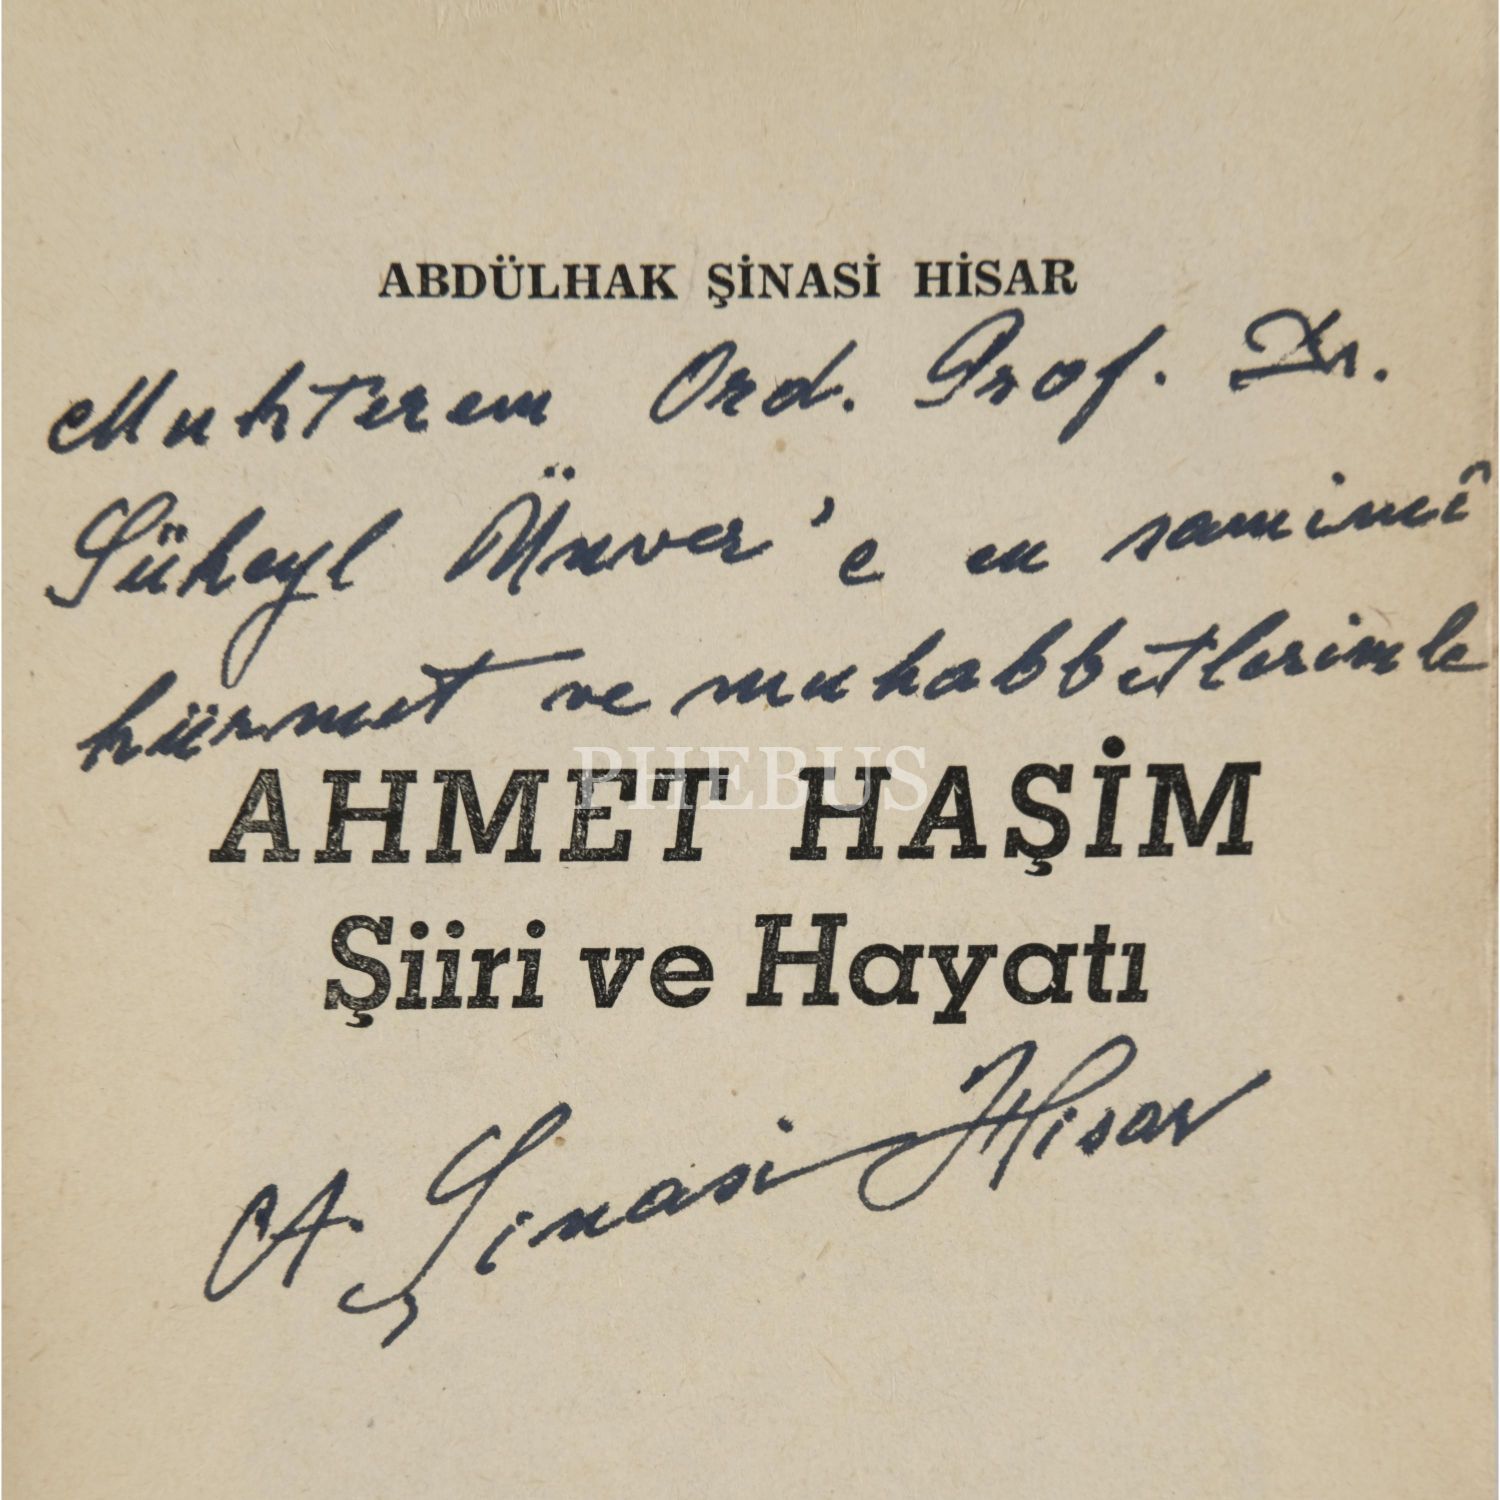 ABDÜLHAK ŞİNASİ HİSAR
Muhterem Ord. Prof. Dr.
Süheyl Ünver'e en samimî
hürmet ve muhabbetlerimle
PHEBUS
AHMET HAŞİM
Şiiri ve Hayatı
A. Şinasi Hisar